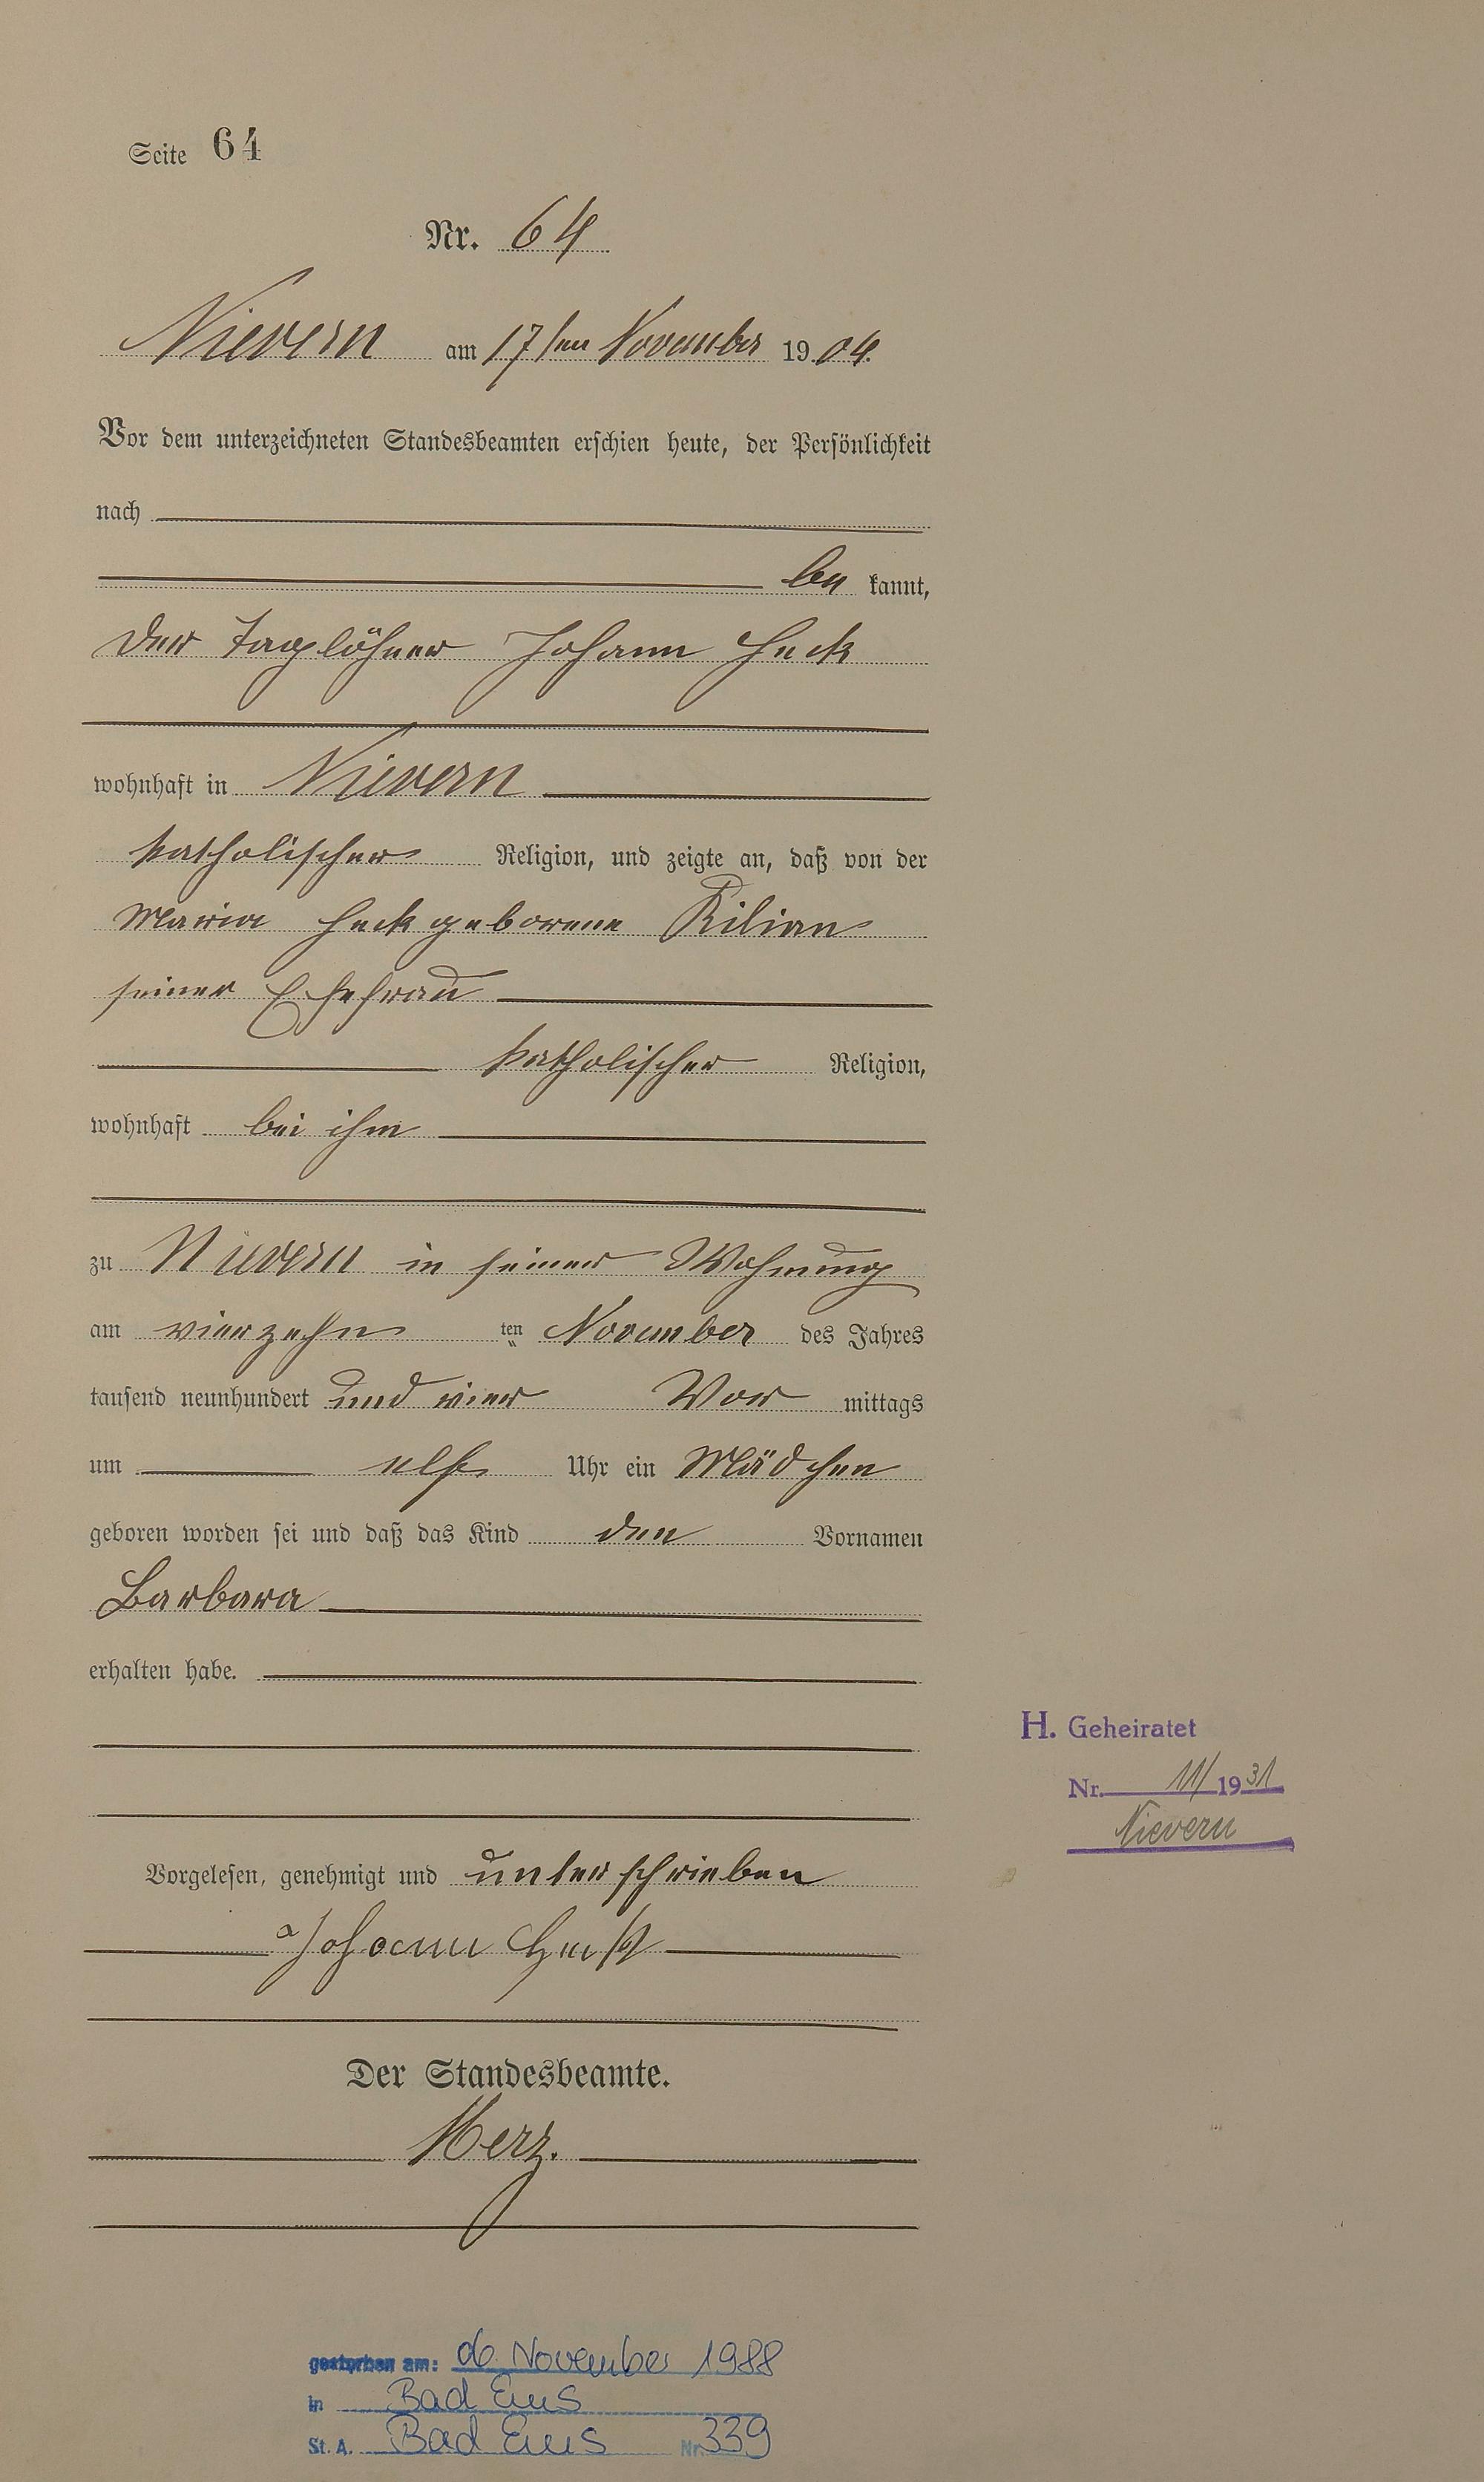 Seite 64
Nr. 64
Nievern am 17ten November 1904.
Vor dem unterzeichneten Standesbeamten erschien heute, der Persönlichkeit
nach
be kannt,
der Taglöhner Johann Heck
wohnhaft in Nievern
katholischer Religion, und zeigte an, daß von der
Maria Heck geborene Kilian
seiner Ehefrau
katholischer Religion,
wohnhaft bei ihm
zu Nievern in seiner Wohnung
am vierzehn ten November des Jahres
tausend neunhundert und vier Vor mittags
um elf Uhr ein Mädchen
geboren worden sei und daß das Kind den Vornamen
Barbara
erhalten habe.
H. Geheiratet
Nr. 11/1931
Nievern
Vorgelesen, genehmigt und unterschrieben
Johann Heck
Der Standesbeamte.
Merz.
gestorben am: 06. November 1988
in Bad Ems
St. A. Bad Ems Nr. 339